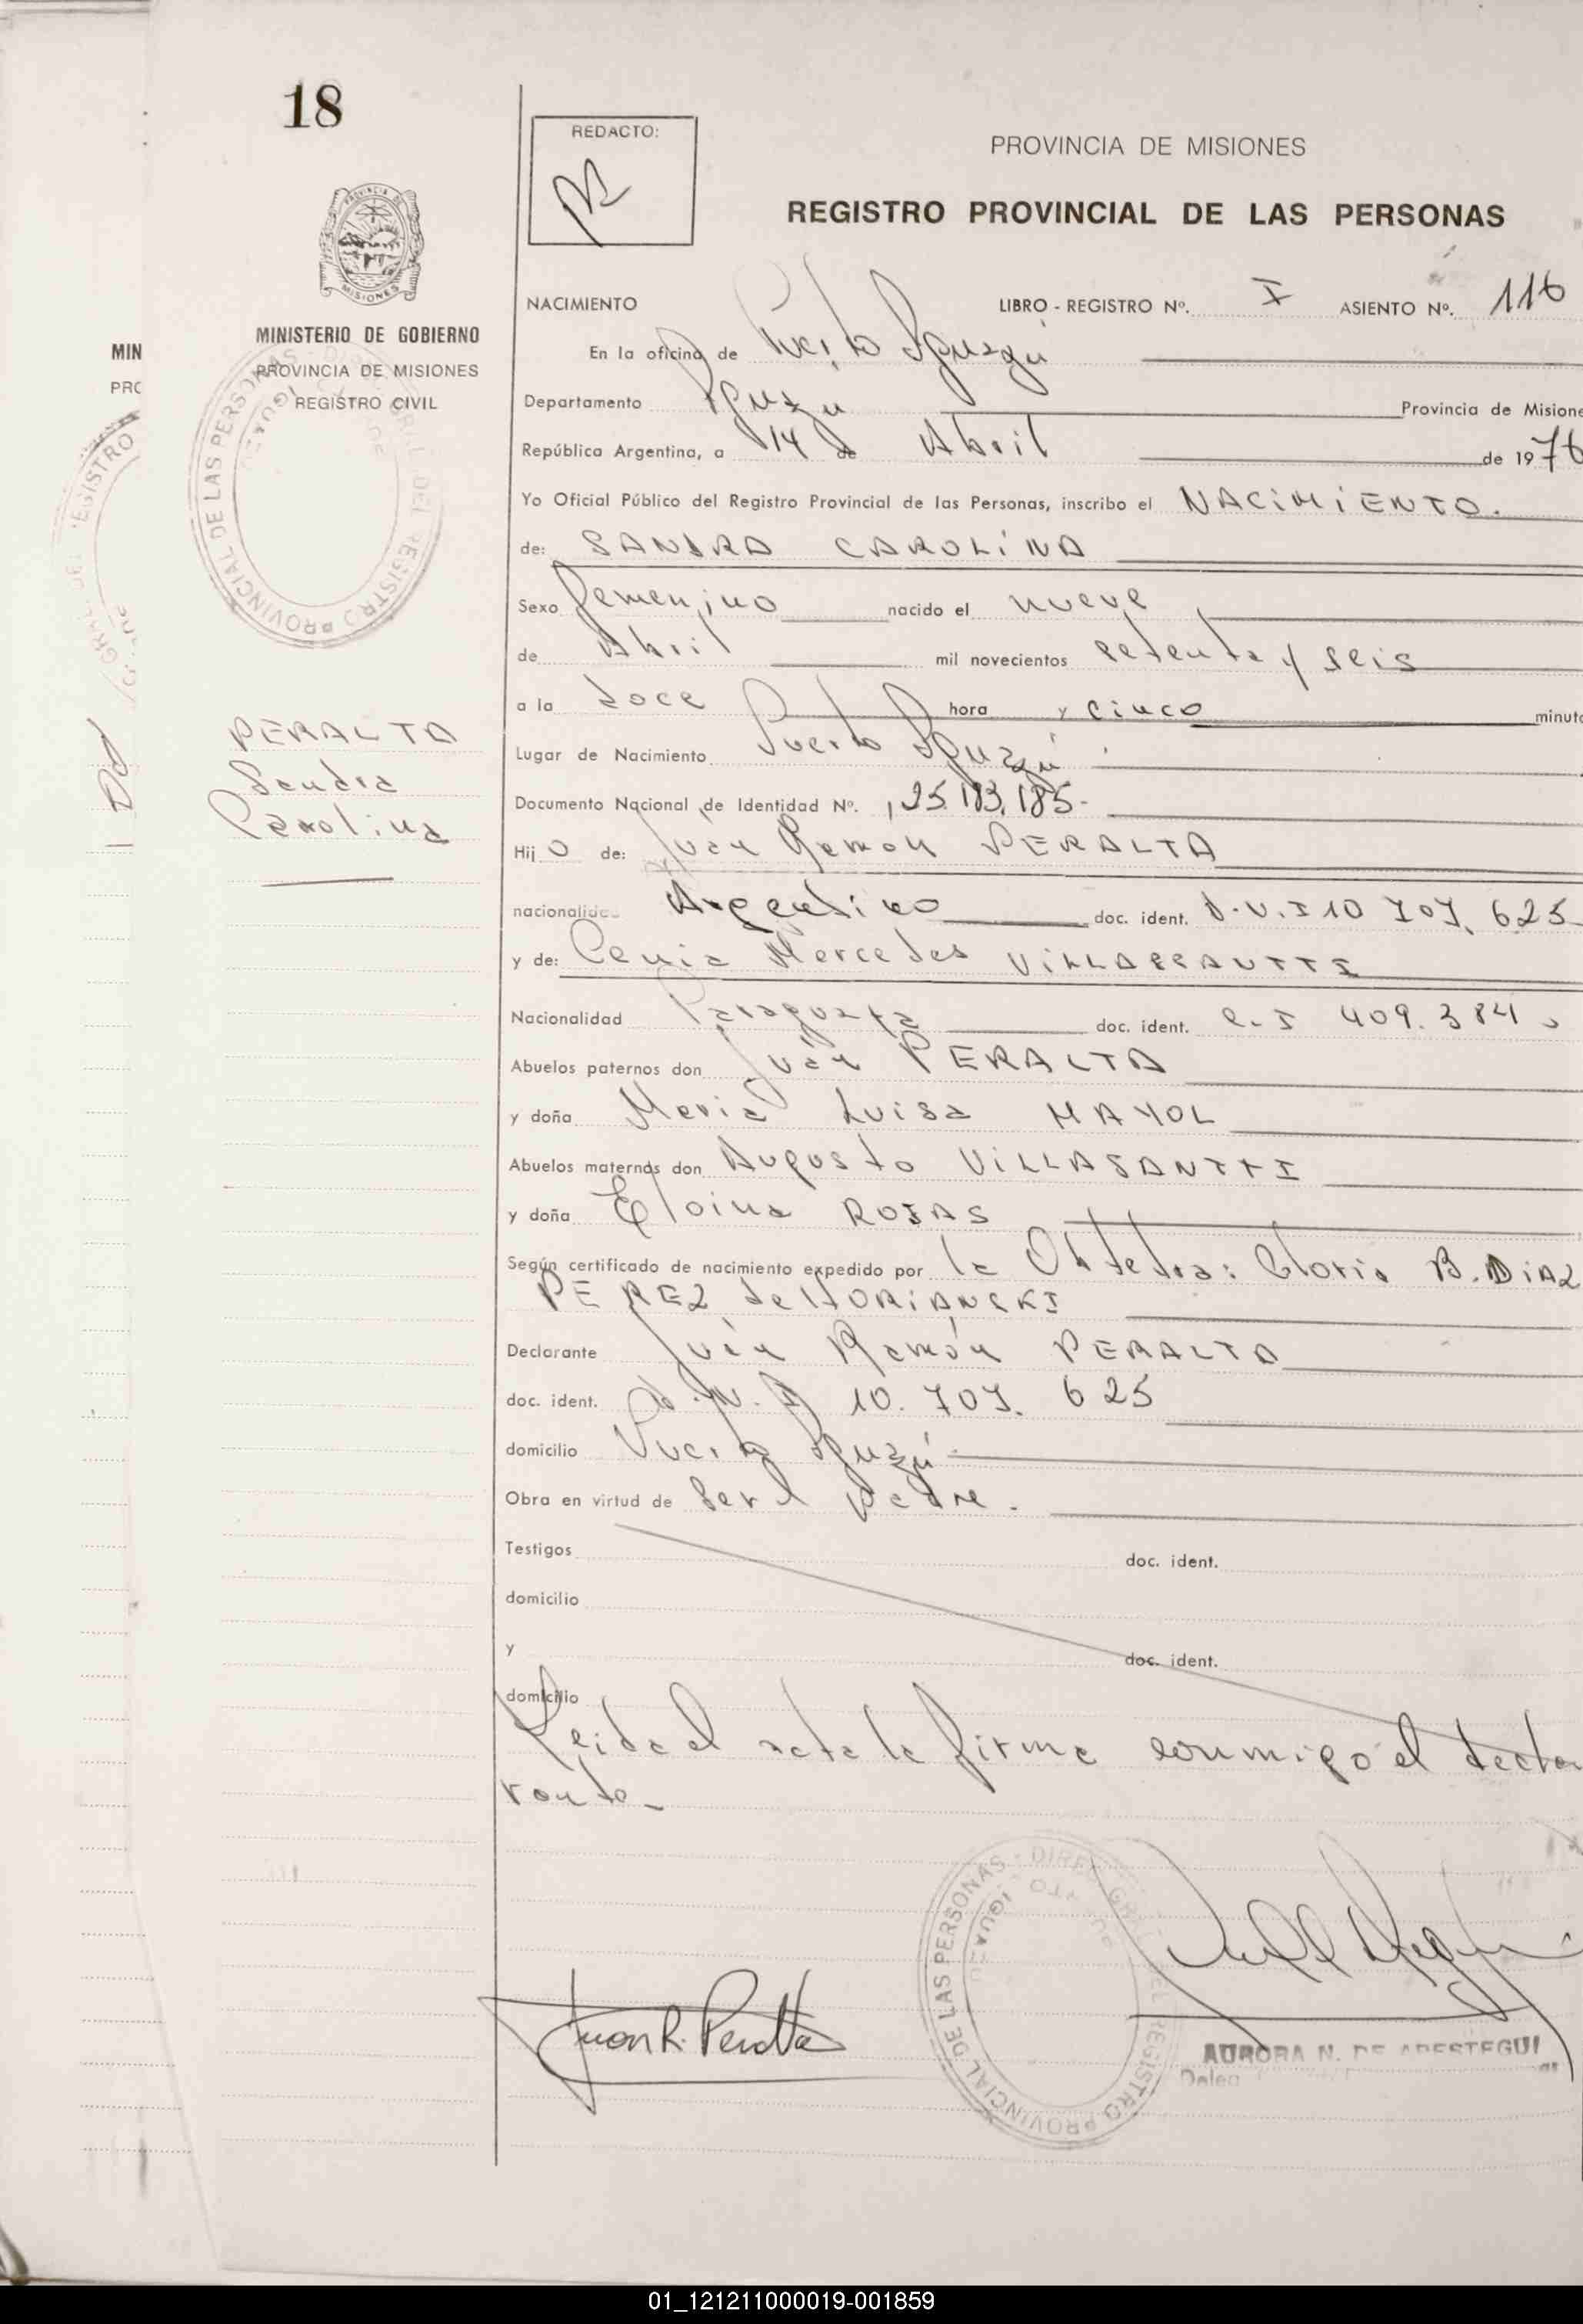 18
REDACTO:
PROVINCIA DE MISIONES
REGISTRO PROVINCIAL DE LAS PERSONAS
PROVINCIA DE
MISIONES
MINISTERIO DE GOBIERNO
PROVINCIA DE MISIONES
REGISTRO CIVIL
MIN
PRC
NACIMIENTO LIBRO - REGISTRO Nº. I ASIENTO Nº. 116
En la oficina de Puerto Iguazú
Departamento Iguazú Provincia de Misione
República Argentina, a 14 de Abril de 1976
Yo Oficial Público del Registro Provincial de las Personas, inscribo el NACIMIENTO.
de: SANDRA CAROLINA
Sexo femenino nacido el nueve
de Abril mil novecientos setenta y seis
a la doce hora y cinco minuto
Lugar de Nacimiento Puerto Iguazú.
Documento Nacional de Identidad Nº. 25.183.185-
Hij O de: Juan Ramón PERALTA
nacionalidad Argentino doc. ident. D.N.I 10 707.625
y de: Cenia Mercedes VILLASSANTTI
Nacionalidad Paraguaya doc. ident. C.I 409.384
Abuelos paternos don Juan PERALTA
y doña Maria Luisa MAYOL
Abuelos maternos don Augusto VILLASANTTI
y doña Eloina ROJAS
Según certificado de nacimiento expedido por la Obtetra: Gloria B. DIAZ
PEREZ de HORIANSKI
Declarante Juan Ramón PERALTA
doc. ident. D.N.I 10.707.625
domicilio Puerto Iguazú-
Obra en virtud de Ser el padre.
Testigos doc. ident.
domicilio
y doc. ident.
domicilio
Leida el acta la firma conmigo el decla
rante_
PERALTA
Sandra
Carolina
REGISTRO PROVINCIAL DE LAS PERSONAS
Juan R. Peralta
REGISTRO PROVINCIAL DE LAS PERSONAS
IGUAZU
AURORA N. DE ARESTEGUI
01_121211000019-001859